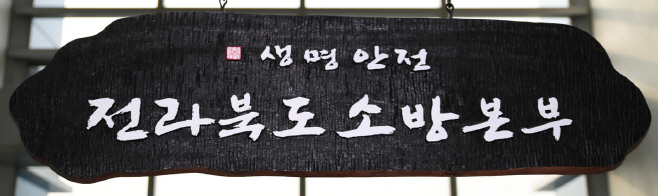 생명안전
전라북도소방본부